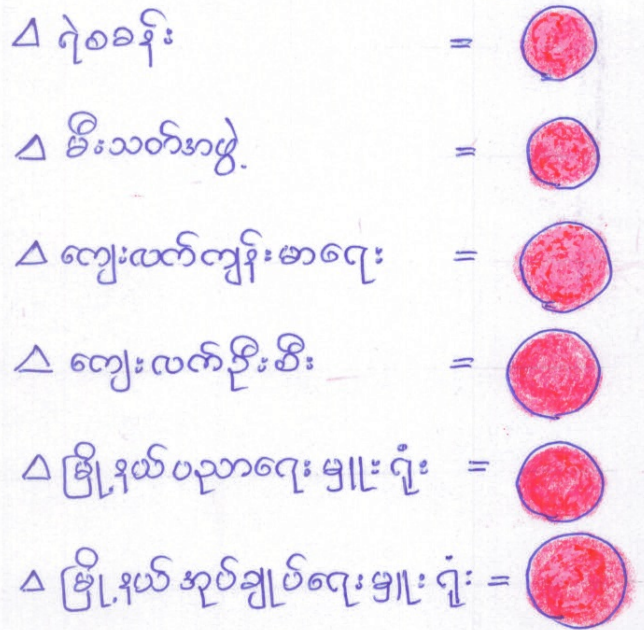 △ ရဲစခန်း =
△ မီးသတ်အဖွဲ့ =
△ ကျေးလက်ကျန်းမာရေး =
△ ကျေးလက်ဦးစီး =
△ မြို့နယ်ပညာရေးမှူးရုံး =
△ မြို့နယ်အုပ်ချုပ်ရေးမှူးရုံး =